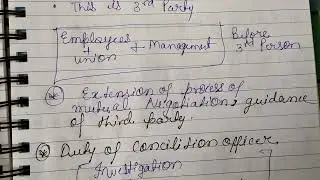 • This is 3rd Party
Employees + Management Before
union 3rd Person
* Extension of process of
mutual Negotiation; guidance
of third party.
* Duty of Concilition officer
Investigation